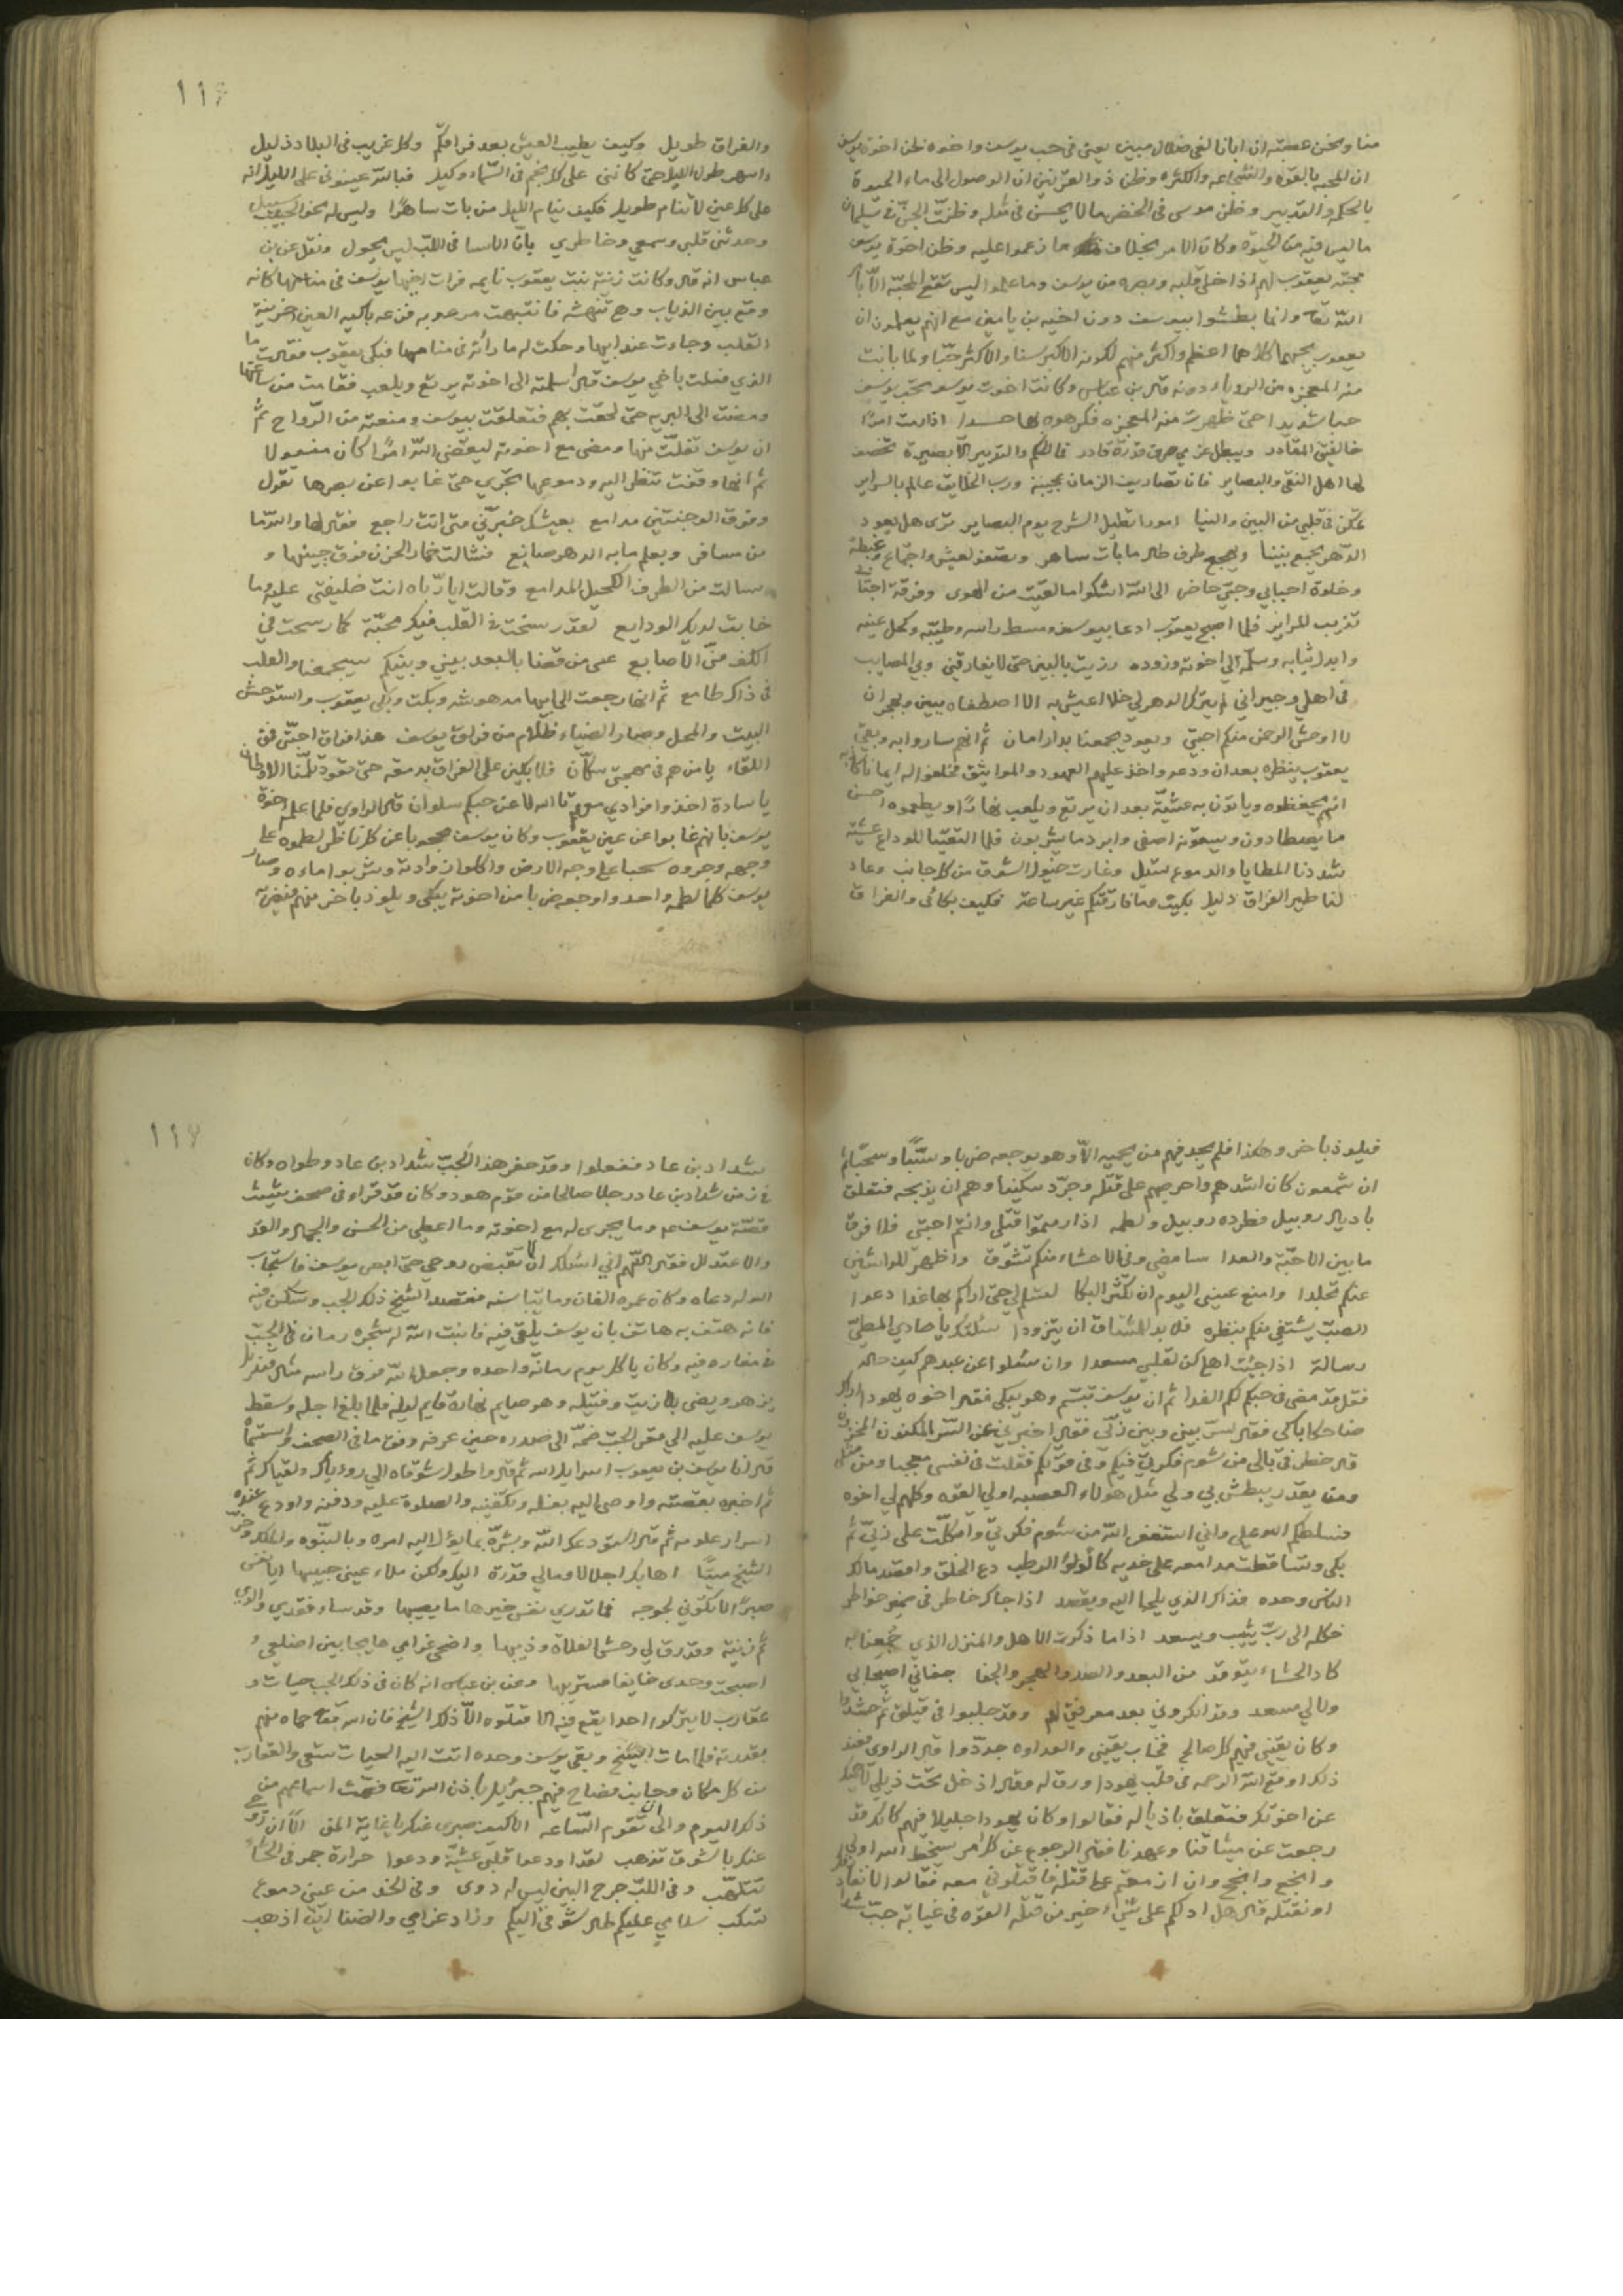 منا ونحن عصبة ان ابانا لفى ضلال مبين يعنى فى حب يوسف واخوه ظن اخوة يوسف
ان المحبه بالقوه والشجاعه والكثره وظن ذو القرنين ان الوصول الى ماء الحيوة
بالحكم والتدبير وظن موسى فى الخضر مالا يحسن فى مثله وظنت الجن فى سليمان
ما ليس فيه من الحيوة وكان الامر بخلاف ما زعموا عليه وظن اخوة يوسف
محبة يعقوب لهم اذا خلى قلبه وبصره من يوسف وما علموا ليس تقع المحبة الا بامر
الله تعا وانما بطشوا بيوسف دون اخيه بن يامين مع انهم يعلمون ان
يعقوب يحبهما كلاهما اعظم واكثر منهم لكونه الاكبر سنا والاكثر حبا ولما بانت
منه المعجزه من الرويا ردونه قال بن عباس وكانت اخوت يوسف تحب يوسف
حبا شديدا حتى ظهرت منه المعجزه فكرهوه بها حسدا اذا ابت امرًا
خالفيق المقادر ويبطل عزمى صرف قدرة قادر فالحكم والتدبير الا بصيرة تخصف
لها اهل التقى والبصاير فان تصاريف الزمان عجيبة ورب الخلايق عالم بالسراير
تمكن فى قلبى من البين والنيا امورا تطيل الشرح يوم البصاير ترى هل يعود
الدهر يجمع بيننا ويهجع طرف طال ما بات ساهر وبصفو لعيش واجتماع وغبطة
وخلوة احبابى وحبى حاضر الى الله اشكوا ما لقيت من الهوى وفرقة احبتا
تقرب المراير فلما اصبح يعقوب ادعا بيوسف ومسط راسه وطيبه وكحل عينه
وابدل ثيابه وسلمه الى اخوته وزوده رزيت بالبين حتى لا يفارقنى وبي المصايب
فى اهلي وجيراني لم يترك الدهر لي خلا اعيش به الا اصطفاه ببين وهجران
لا اوحش الرحمن منكم احبتي ويعود يجمعنا بدار امان ثم انهم ساروا به وبقي
يعقوب ينظره بعد ان ودعه واخذ عليهم العهود والمواثيق فحلفوا له ايمانا كاذبه
انهم يحفظوه وياتون به عشية بعد ان يرتع ويلعب نهارًا ويطعموه احسن
ما يصطادون ويسقونه اصفى وابرد ما يشربون فلما التقينا للوداع عشية
شددنا المطايا والدموع تسيل وغارت خيول الشوق من كل جانب وعاد
لنا طير الفراق دليل بكيت وما فارقتكم غير ساعة فكيف بكائى والفراق
والفراق طويل وكيف يطيب العيش بعد فراقكم وكل غريب فى البلاد ذليل
واسهر طول الليل حتى كاننى على كل نجم فى السماء وكيل فيا لله عينونى على الليل انه
على كل عين لا تنام طويل فكيف ينام الليل من بات ساهرًا وليس له نحو الحبيب سبيل
وحدثنى قلبى وسمعي وخاطري بان الاسا فى اللب ليس يحول ونقل عن بن
عباس انه قال وكانت زينة بنت يعقوب نايمه فرات اخيها يوسف فى منامها كانه
وقع بين الذياب وهي تنهشه فانتبهت مرعوبه فزعه باكيه العين حزينة
القلب وجاءت عند ابيها وحكت له ما رأته فى منامها فبكى يعقوب فقالت ما
الذي فعلت باخي يوسف قال اسلمته الى اخوته يرتع ويلعب فقامت من ساعتها
ومضت الى البريه حتى لحقت بهم فتعلقت بيوسف ومنعته من الرواح ثم
ان يوسف تفلت منها ومضى مع اخوته ليقضى الله امرًا كان مفعولا
ثم انها وقفت تنظر اليه ودموعها تجري حتى غابوا عن بصرها تقول
وفوق الوجنتين مدامع بعيشك خبرني متى انت راجع فقال لها والله ما
من مسافر ويعلم ما به الدهر صانع فشالت خمار الحزن فوق جبينها و
سالت من الطرف الكحيل المدامع وقالت ايا رباه انت خليفتى عليه وما
خابت لديك الودايع لقد رسخت فى القلب فيكم محبة كما رسحت في
الكف منى الاصابع عسى من قضا بالبعد بيني وبينكم سيجمعنا والقلب
فى ذاك طامع ثم انها رجعت الى ابيها مدهوشه وبكت وبكى يعقوب واستوحش
البيت والمحل وصار الضياء ظلام من فراق يوسف هذا فراق احبتي فمتى
اللقاء يا من هم فى مهجتي سكان فلا بكين على الفراق بدمعه حتى تعود تلمنا الاوطان
يا سادة اخذوا فؤادي معهم تالله لا عن حبكم سلوان قال الراوي فلما علم اخوة
يوسف بانهم غابوا عن عين يعقوب وكان يوسف محجوبا عن كل ناظر لطموه على
وجهه وجروه سحبا على وجه الارض واكلوا زوادته وشربوا ماءه وصار
يوسف كلما لطمه واحد واوجعه ضربا من اخوته يبكى ويلوذ باخر منهم فيضربه
فيلوذ باخر وهكذا فلم يجد فيهم من يحميه الا وهو يوجعه ضربا وسبًا وسحبًا ثم
ان شمعون كان اشدهم واحرصهم على قتله وجرد سكينا وهم ان يذبحه فتعلق
باديال روبيل فطرده روبيل ولطمه اذا رمتموا قتلى وانتم احبتى فلا فرق
ما بين الاحبة والعدا سامضي وفى الاحشاء منكم تشوق واظهر للواشين
عنكم تجلدا وامنع عينى اليوم ان تكثر البكا لتسلم لي حتى اراكم بها غدا دعوا
الصب يشتفي منكم بنظره فلا بد للمشتاق ان يتزودا سئلتك يا حادي المطي
رسالة اذا جئت اهلا كن لقلبي مسعدا وان سئلوا عن عبدهم كيف حاله
فقل قد مضى فى حبكم لكم الفدا ثم ان يوسف تبسم وهو يبكى فقال اخوه يهودا اراك
ضاحكا باكى فقال لسر بيني وبين ربى فقال اخبرني عن السر المكنون المخزون
قال خطر فى بالى من شوم فكرتى فيكم وفى قوتكم فقلت فى نفسى معجبا ومن مثلى
ومن يقدر يبطش بي ولي مثل هولاء العصبه اولي القوه وكلهم لي اخوه
فسلطكم الله علي وانى استغفر الله من شوم فكرتي واتكلت على ربي ثم
بكى وتساقطت مدامعه على خديه كاللولو الرطب دع الخلق واقصد مالك
الناس وحده فذاك الذي يلجا اليه ويقصد اذا جاك خاطر فى ضمير خواطر
فكله الى رب يثيب ويسعد اذا ما ذكرت الاهل والمنزل الذي جمعنا به
كاد الحشاء يتوقد من البعد والصد والهجر والجفا جفانى اصيحابي
ولا لي مسعد وقد انكروني بعد معرفتي لهم وقد جلبوا فى قتلتى ثم حشدوا
وكان يقيني فيهم كل صالح فخاب يقينى والعداوه جددوا قال الراوى فعند
ذلك اوقع الله الرحمه فى قلب يهودا ورق له وقال ادخل تحت ذيلي لاحميك
عن اخوتك فتعلق باذياله فقالوا وكان يهودا جليلا فيهم كانك قد
رجعت عن ميثاقنا وعهدنا فقال الرجوع عن كل امر يسخط الله اولى
وانجع وانجح وان ازمعتم على قتله فاقتلوني معه فقالوا الا نفارق
او نقتله قال هل ادلكم على شيء اخير من قتله القوه فى غيابة جب شداد
شداد بن عاد ففعلوا وقد حفر هذا الجب شداد بن عاد وطواه وكان
فى زمن شداد بن عاد رجلا صالحا من قوم هود وكان قد قراء فى صحف شيث
قصة يوسف عم وما يجرى له مع اخوته وما اعطي من الحسن والجمال والقد
والاعتدال فقال اللهم اني اسئلك ان لا تقبض روحي حتى ابصر يوسف فاستجاب
الله له دعاه وكان عمره الفان ومايتا سنه فقصد الشيخ ذلك الجب وسكن فيه
فانه هتف به هاتف بان يوسف يلقى فيه فانبت الله له شجره رمان فى الجب
فى مغاره فيه وكان ياكل كل يوم رمانة واحده وجعل الله فوق راسه مثال قنديل
يزهر ويضى بلا زيت وفتيله وهو صايم نهاره قايم ليله فلما بلغ اجله وسقط
يوسف عليه الى مقر الجب ضمه الى صدره حين عرفه وفق ما فى الصحف واستفهمه
قال انا يوسف بن يعقوب اسرايل الله ثم قال واطول شوقاه الي روياك ولقياك ثم
ثم اخبره بقصته واوصى اليه بغسله وتكفينه والصلوة عليه ودفنه واودع عنده
اسرار علومه ثم قال استودعك الله وبشره بما يؤل اليه امره وبالنبوه والملك وخر
الشيخ ميتًا اهابك اجلالا ومالي قدرة اليك ولكن ملاء عيني حبيبها ايا نفس
صبرًا لا تكوني لجوجه فما تدري نفس خيرها ما يصيبها وقد ساء فقدي والدي
ثم زينة وقد رق لي وحش الفلاة وذيبها واضحى غرامي هايجا بين اضلعي و
اصبحت وحدى خايفا مستريبها وعن بن عباس انه كان فى ذلك الجب حيات و
عقارب لا يتركوا احدا يقع فيه الا قتلوه الا ذلك الشيخ فان الله تعا حماه منهم
بقدرته فلما مات الشيخ وبقي يوسف وحده اتت اليه الحيات تسعى والعقارب
من كل مكان وجانب فصاح فيهم جبرئيل باذن الله تعا فصمت اسماعهم من
ذلك اليوم والى ان تقوم الساعه الا كيف صبرى عنك يا غاية المنى الا ان روحي
عنك بالشوق تذهب لقد اودعوا قلبى عشية ودعوا حرارة جمر فى الحشاء
تتلهب وفى اللب جرح البين ليس له دوى وفى الخد من عيني دموع
تسكب سلامي عليكم طال شوقي اليكم وزاد غرامي والضنا اين اذهب